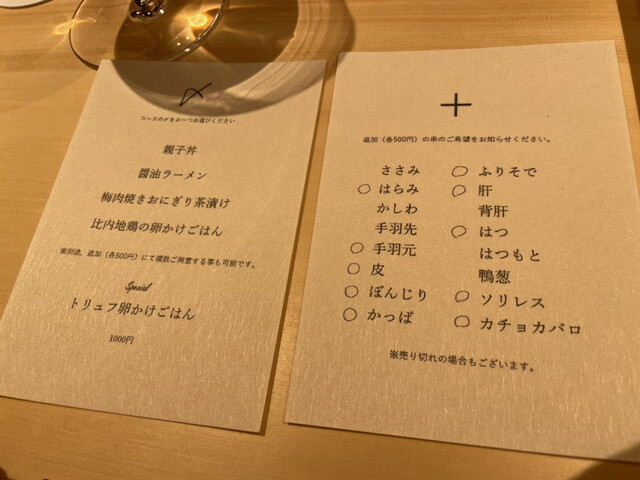 〆
コースの〆をお一つお選びください
親子丼
醤油ラーメン
梅肉焼きおにぎり茶漬け
比内地鶏の卵かけごはん
※別途、追加（各500円）にて複数ご用意する事も可能です。
Special
トリュフ卵かけごはん
1000円
＋
追加（各500円）の串のご希望をお知らせください。
ささみ
○ はらみ
かしわ
手羽先
○ 手羽元
○ 皮
○ ぼんじり
○ かっぱ
○ ふりそで
○ 肝
背肝
○ はつ
はつもと
鴨葱
○ ソリレス
○ カチョカバロ
※売り切れの場合もございます。